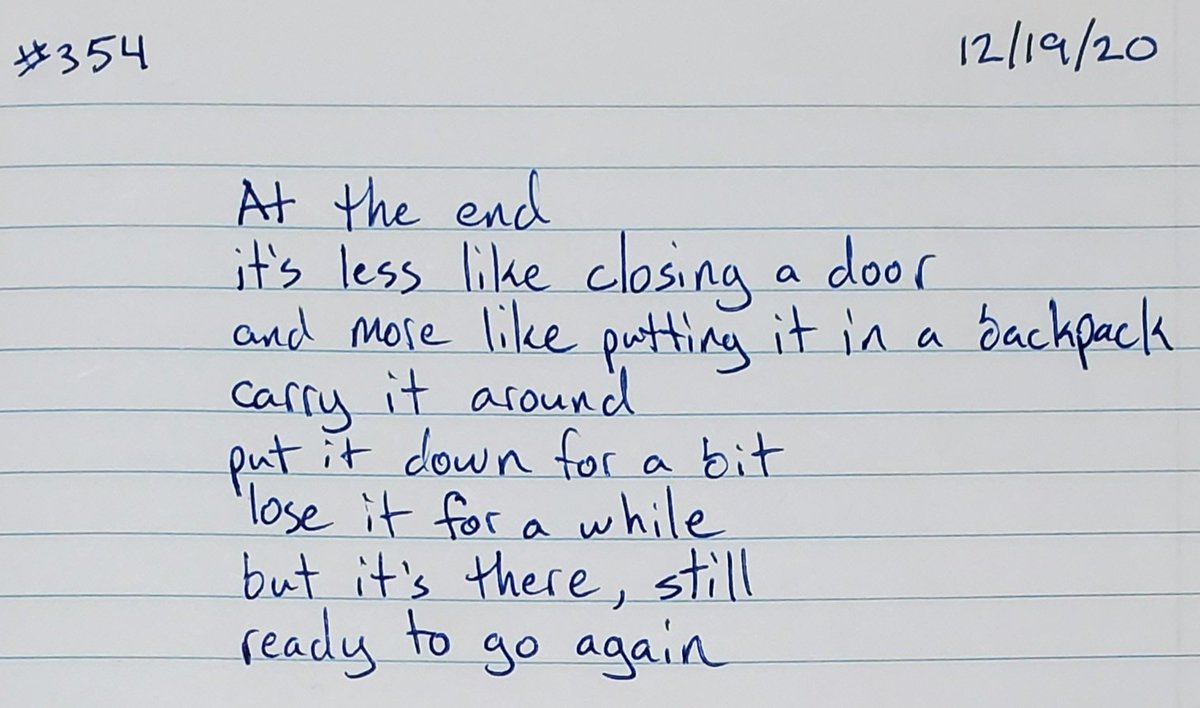 #354 12/19/20
At the end
it's less like closing a door
and more like putting it in a backpack
carry it around
put it down for a bit
lose it for a while
but it's there, still
ready to go again